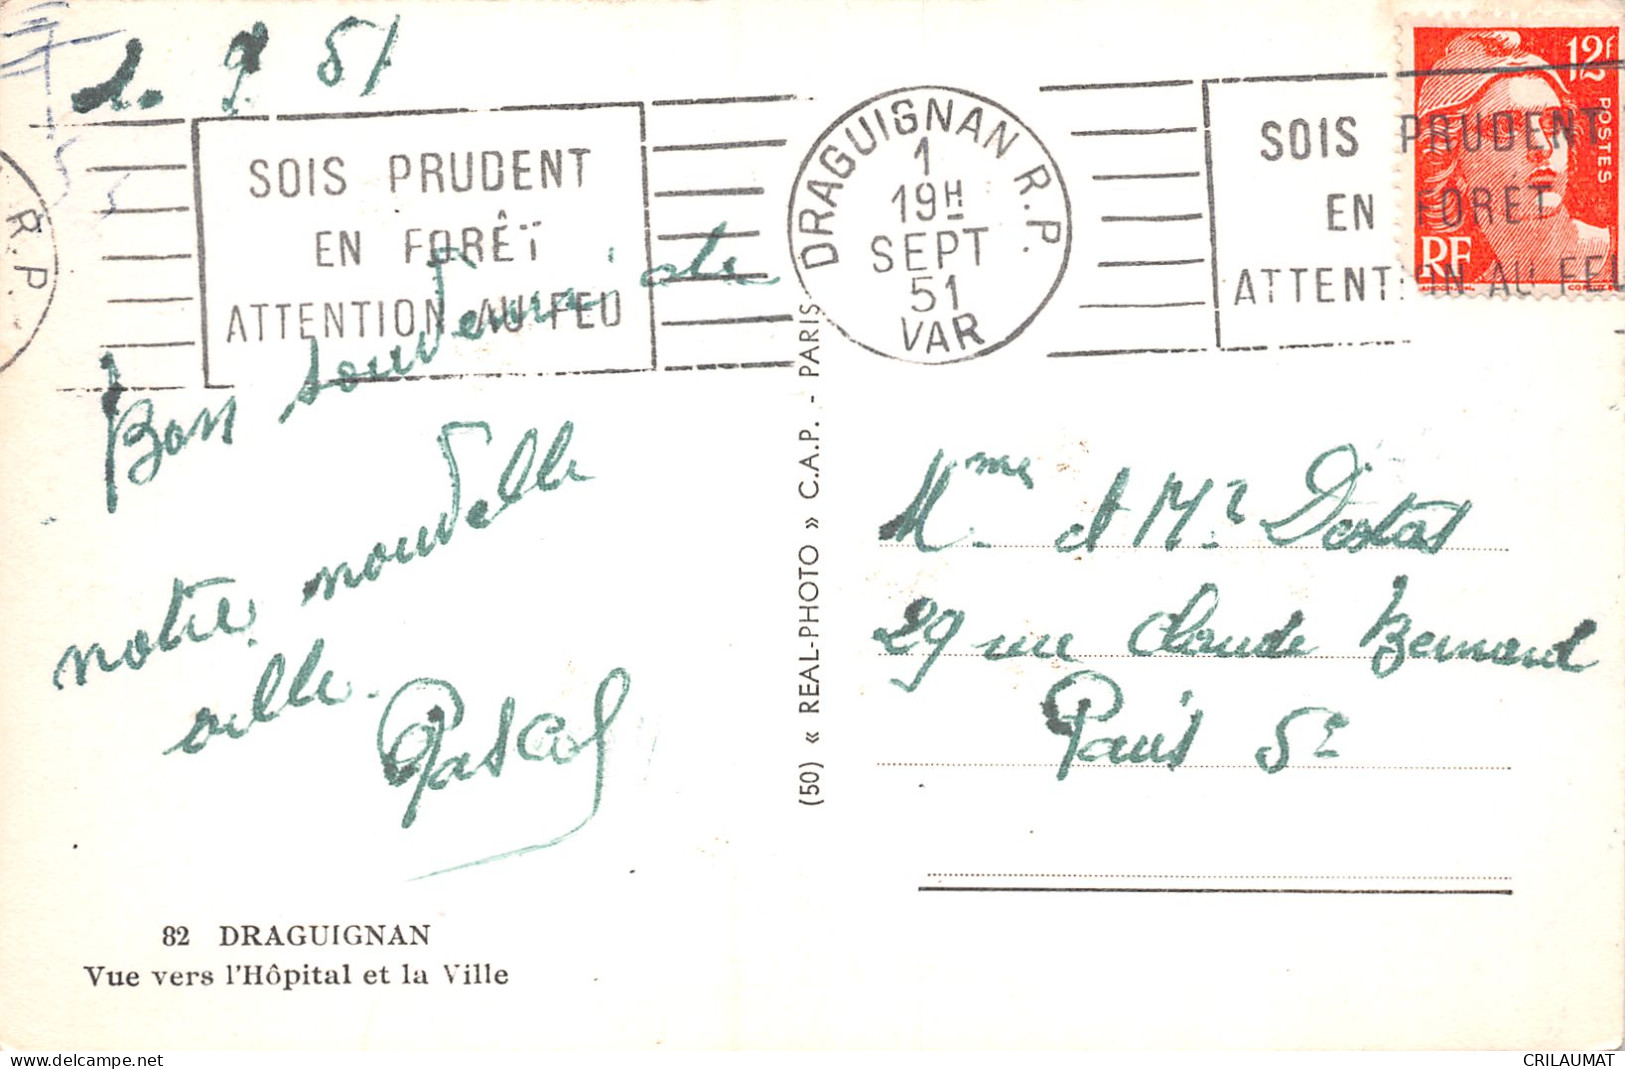 1. 9 51
SOIS PRUDENT
EN FORÊT
ATTENTION AU FEU
R.P.
DRAGUIGNAN R.P.
1
19H
SEPT
51
VAR
SOIS PRUDENT
EN FORÊT
ATTENTION AU FEU
12F
POSTES
RF
Bon souvenir de
notre nouvelle
ville.
Pascal
(50) « REAL-PHOTO » C.A.P. - PARIS
Mme et Mr Distas
29 rue Claude Bernard
Paris 5e
82 DRAGUIGNAN
Vue vers l'Hôpital et la Ville
www.delcampe.net
CRILAUMAT